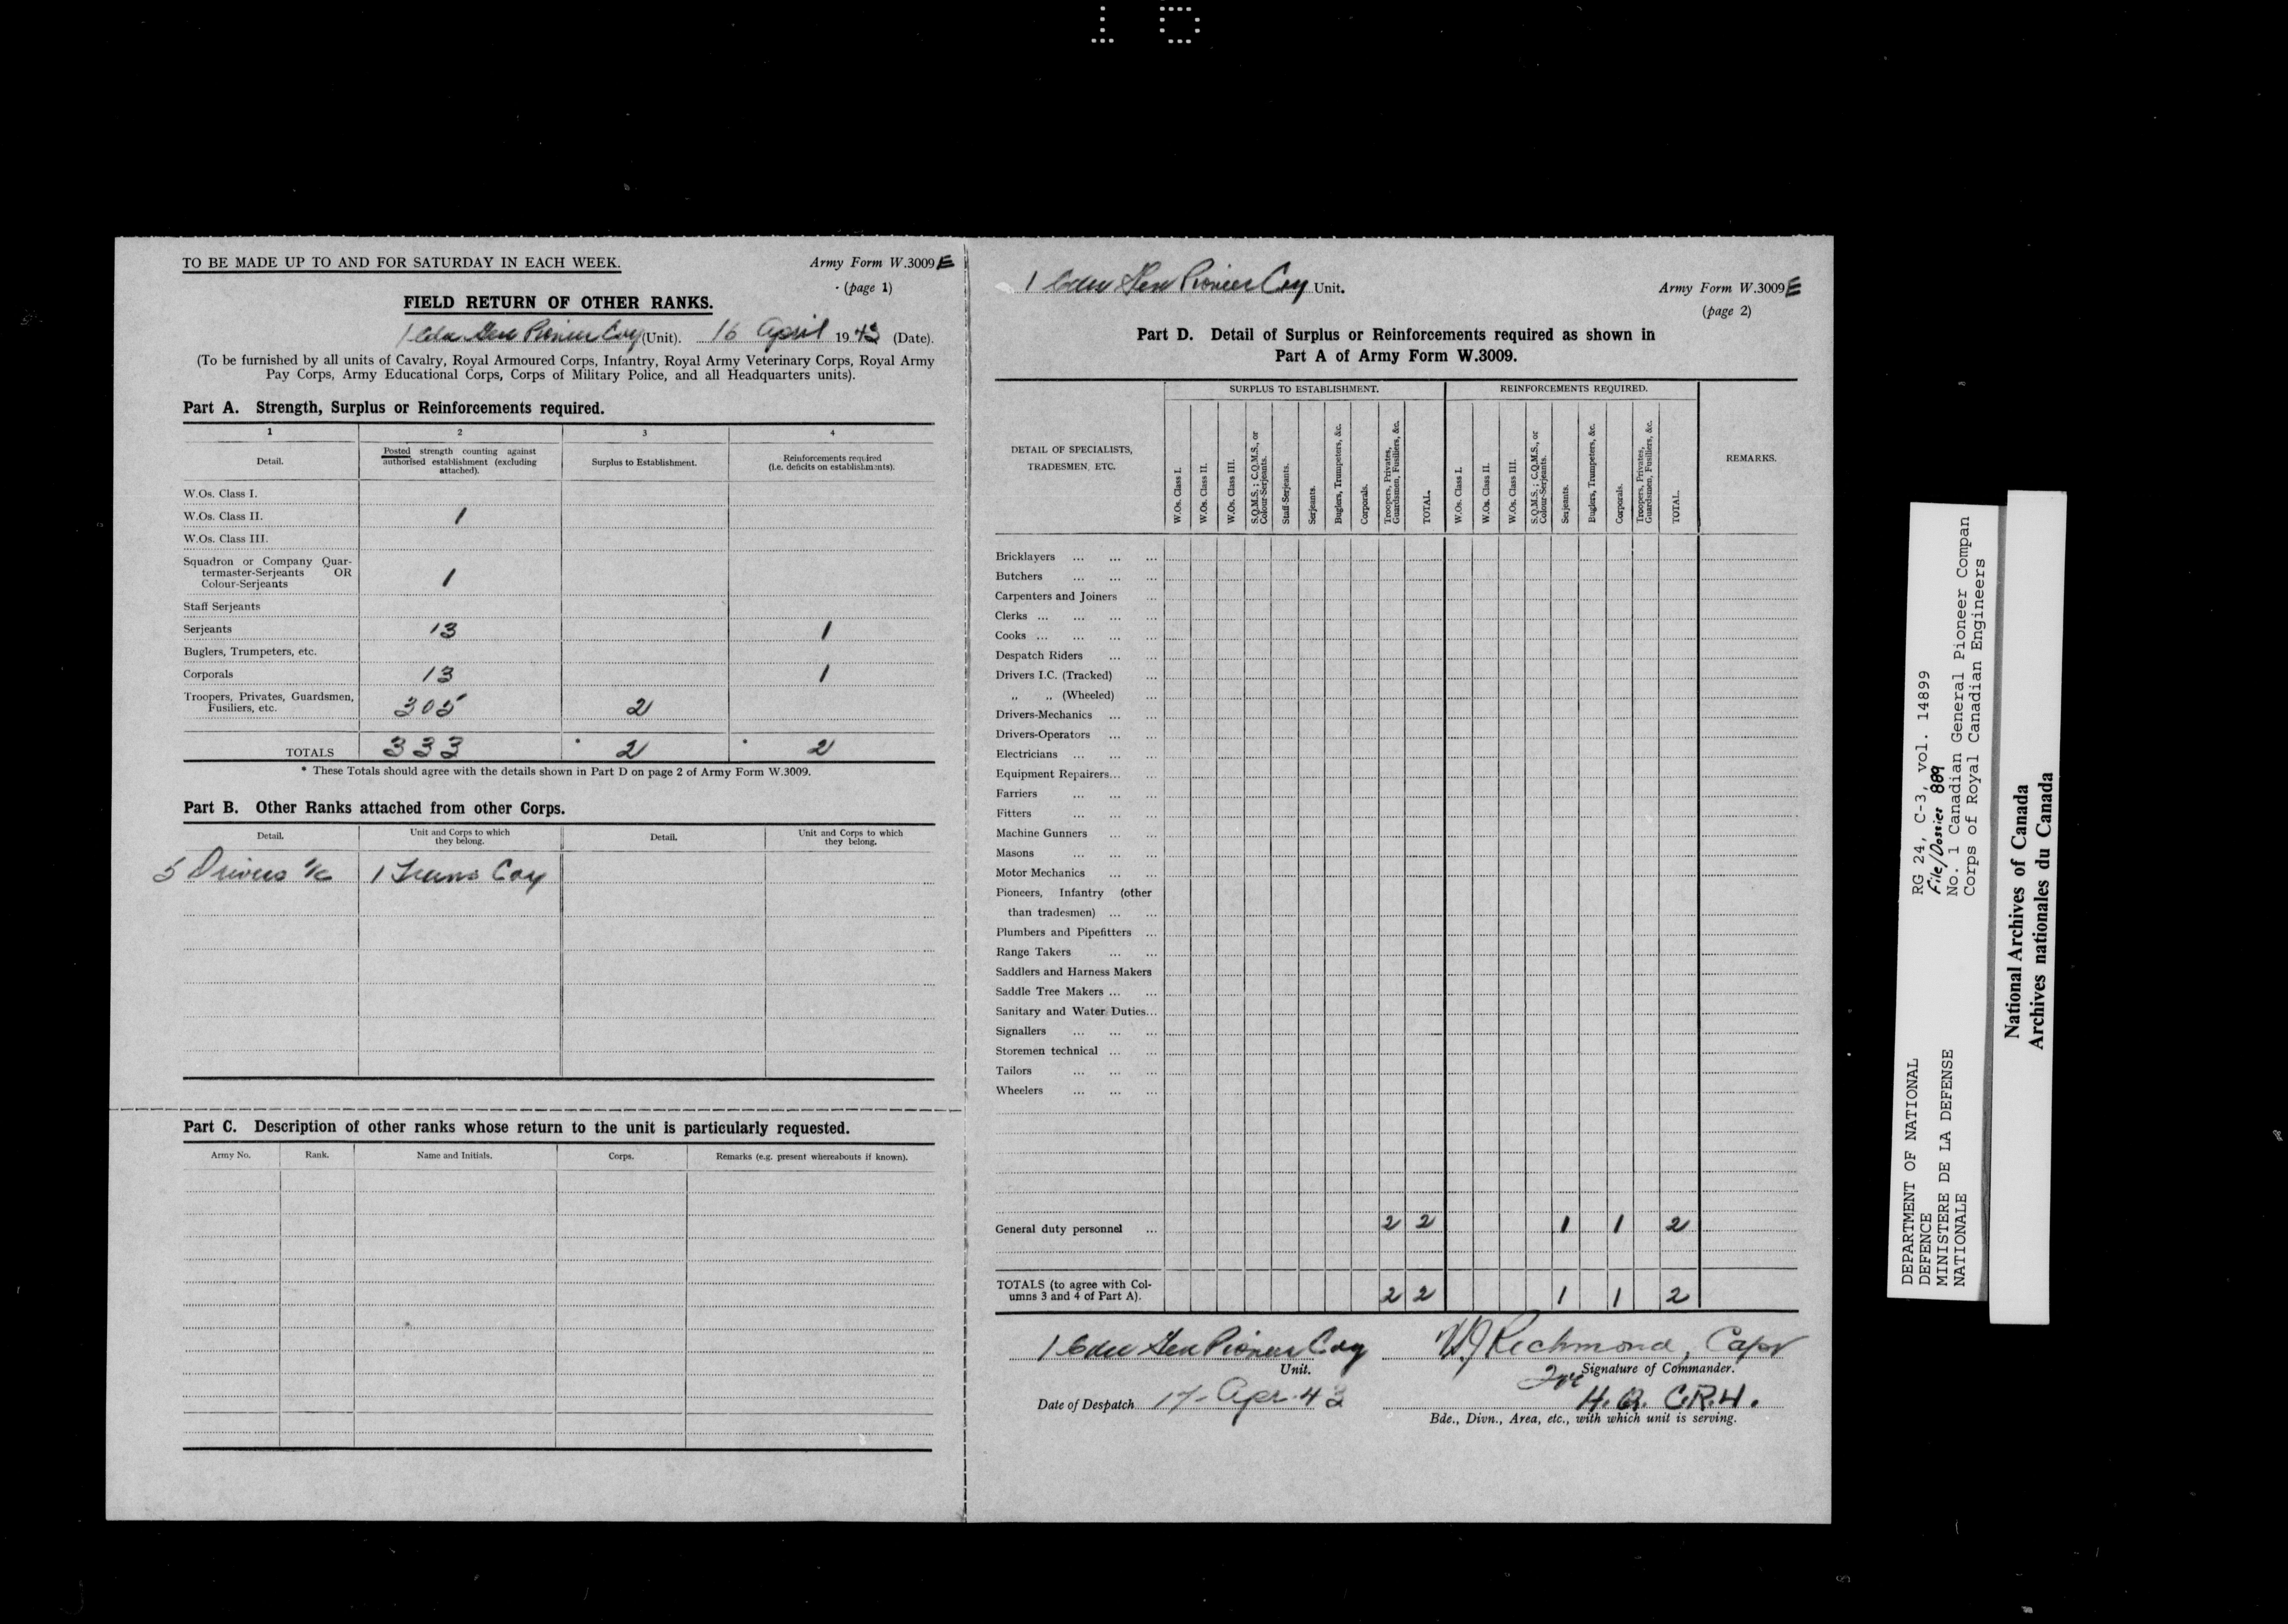 TO BE MADE UP TO AND FOR SATURDAY IN EACH WEEK.
Army Form W.3009 E
(page 1)
FIELD RETURN OF OTHER RANKS.
1 Cdn Gen Pioneer Coy (Unit). 16 April 1943 (Date).
(To be furnished by all units of Cavalry, Royal Armoured Corps, Infantry, Royal Army Veterinary Corps, Royal Army
Pay Corps, Army Educational Corps, Corps of Military Police, and all Headquarters units).
Part A. Strength, Surplus or Reinforcements required.
1 2 3 4
Detail. Posted strength counting against authorised establishment (excluding attached). Surplus to Establishment. Reinforcements required (i.e. deficits on establishments).
W.Os. Class I.
W.Os. Class II. 1
W.Os. Class III.
Squadron or Company Quar-
termaster-Serjeants OR
Colour-Serjeants 1
Staff Serjeants
Serjeants 13 1
Buglers, Trumpeters, etc.
Corporals 13 1
Troopers, Privates, Guardsmen,
Fusiliers, etc. 305 2
TOTALS 333 * 2 * 2
* These Totals should agree with the details shown in Part D on page 2 of Army Form W.3009.
Part B. Other Ranks attached from other Corps.
Detail. Unit and Corps to which they belong. Detail. Unit and Corps to which they belong.
5 Drivers i/c 1 Trans Coy
Part C. Description of other ranks whose return to the unit is particularly requested.
Army No. Rank. Name and Initials. Corps. Remarks (e.g. present whereabouts if known).
1 Cdn Gen Pioneer Coy Unit.
Army Form W.3009 E
(page 2)
Part D. Detail of Surplus or Reinforcements required as shown in
Part A of Army Form W.3009.
SURPLUS TO ESTABLISHMENT. REINFORCEMENTS REQUIRED.
DETAIL OF SPECIALISTS,
TRADESMEN, ETC.
W.Os. Class I.
W.Os. Class II.
W.Os. Class III.
S.Q.M.S.; C.Q.M.S., or Colour-Serjeants.
Staff Serjeants.
Serjeants.
Buglers, Trumpeters, &c.
Corporals.
Troopers, Privates, Guardsmen, Fusiliers, &c.
TOTAL.
W.Os. Class I.
W.Os. Class II.
W.Os. Class III.
S.Q.M.S.; C.Q.M.S., or Colour-Serjeants.
Serjeants.
Buglers, Trumpeters, &c.
Corporals.
Troopers, Privates, Guardsmen, Fusiliers, &c.
TOTAL.
REMARKS.
Bricklayers ... ... ...
Butchers ... ... ...
Carpenters and Joiners ...
Clerks ... ... ... ...
Cooks ... ... ... ...
Despatch Riders ... ...
Drivers I.C. (Tracked) ...
,, ,, (Wheeled) ...
Drivers-Mechanics ... ...
Drivers-Operators ... ...
Electricians ... ... ...
Equipment Repairers... ...
Farriers ... ... ...
Fitters ... ... ...
Machine Gunners ... ...
Masons ... ... ...
Motor Mechanics ... ...
Pioneers, Infantry (other
than tradesmen) ... ...
Plumbers and Pipefitters ...
Range Takers ... ...
Saddlers and Harness Makers
Saddle Tree Makers ... ...
Sanitary and Water Duties...
Signallers ... ... ...
Storemen technical ... ...
Tailors ... ... ...
Wheelers ... ... ...
General duty personnel ... 2 2 1 1 2
TOTALS (to agree with Col-
umns 3 and 4 of Part A). 2 2 1 1 2
1 Cdn Gen Pioneer Coy
Unit.
WJ Richmond, Capt
for Signature of Commander.
Date of Despatch 17 Apr 43
H.Q. C.R.H.
Bde., Divn., Area, etc., with which unit is serving.
DEPARTMENT OF NATIONAL
DEFENCE
MINISTERE DE LA DEFENSE
NATIONALE
RG 24, C-3, vol. 14899
File/Dossier 889
No. 1 Canadian General Pioneer Compan
Corps of Royal Canadian Engineers
National Archives of Canada
Archives nationales du Canada